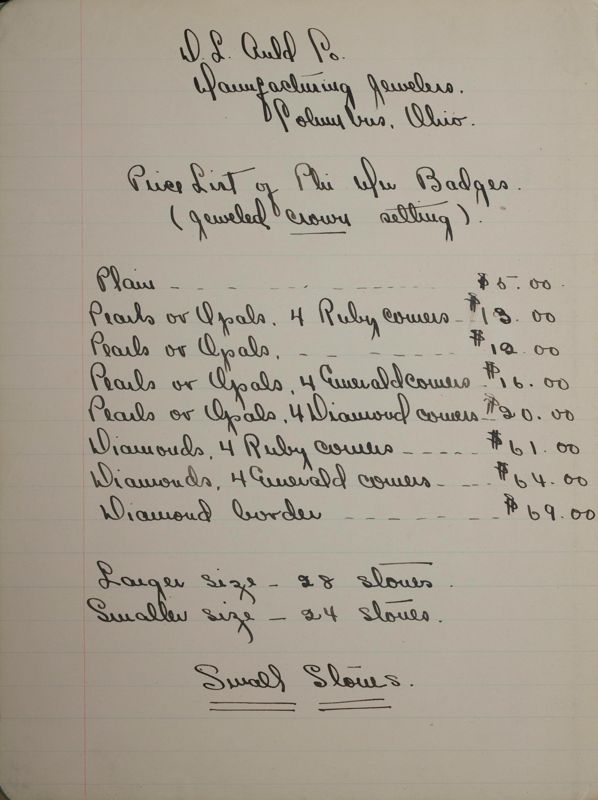 D. L. Auld Co.
Manufacturing Jewelers.
Columbus, Ohio.
Price List of Phi Mu Badges.
(Jeweled crown setting).
Plain - - - - - - - $5.00.
Pearls or Opals, 4 Ruby corners - $13.00
Pearls or Opals, - - - - - - $12.00
Pearls or Opals, 4 Emerald corners - $16.00
Pearls or Opals, 4 Diamond corners - $20.00
Diamonds, 4 Ruby corners - - - - - $61.00
Diamonds, 4 Emerald corners - - - $64.00
Diamond border - - - - - - $69.00
Larger size - 28 stones.
Smaller size - 24 stones.
Small Stones.